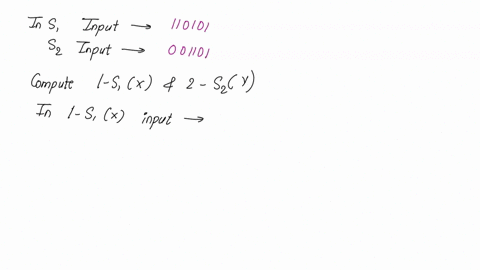 In S₁ Input → 110101
S₂ Input → 001101
Compute 1-S₁(x) & 2-S₂(y)
In 1-S₁(x) input →